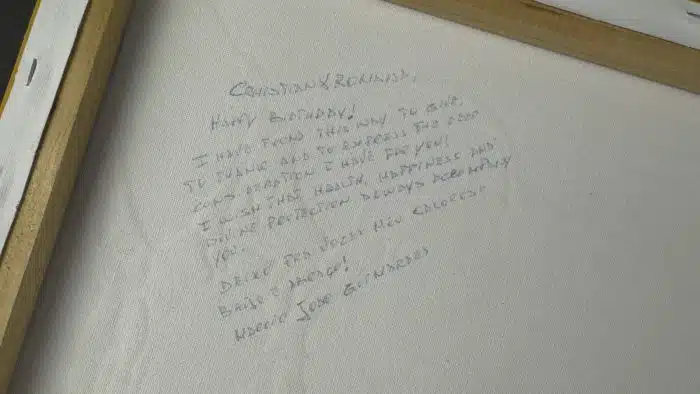 CHRISTIAN & ROMINA,
HAPPY BIRTHDAY!
I HAVE FOUND THIS WAY TO GIVE,
TO THANK AND TO EXPRESS THE DEEP
CONSIDERATION I HAVE FOR YOU!
I WISH THAT HEALTH, HAPPINESS AND
DIVINE PROTECTION ALWAYS ACCOMPANY
YOU.
DEIXO PRA VOCÊS MEU CALOROSO
BEIJO E ABRAÇO!
JOSE GUIMARÃES